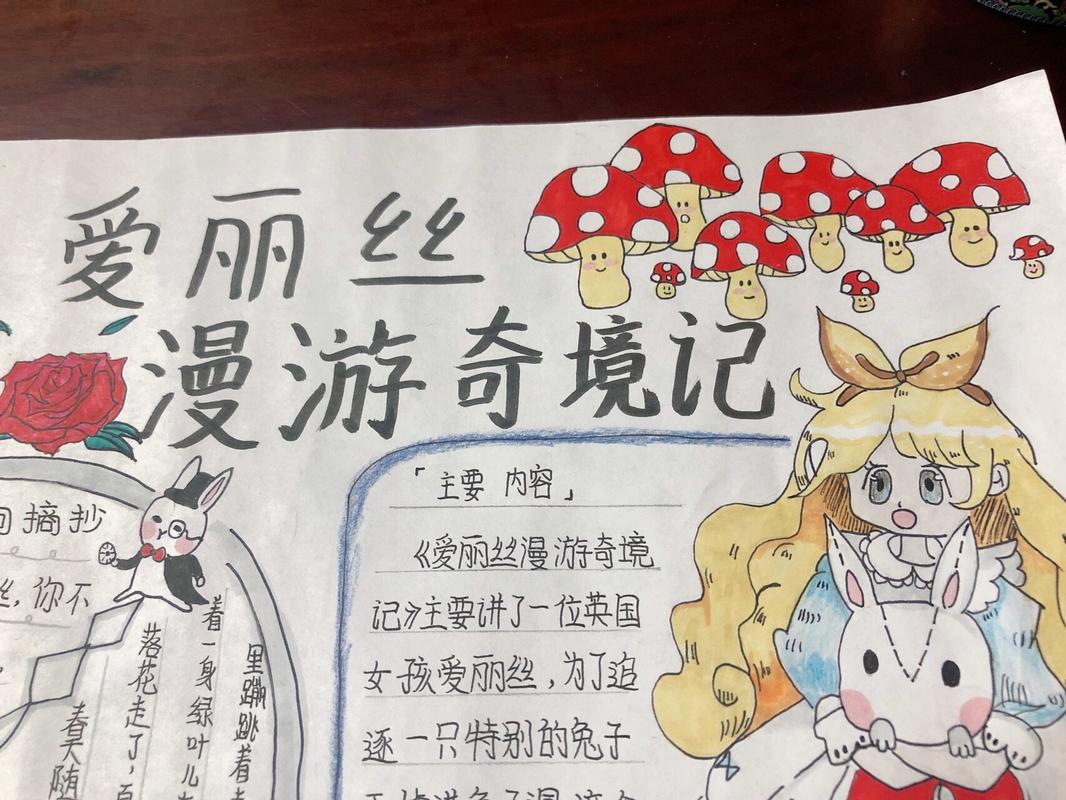 爱丽丝
漫游奇境记
「主要 内容」
《爱丽丝漫游奇境
记》主要讲了一位英国
女孩爱丽丝,为了追
逐一只特别的兔子
摘抄
丝,你不
里蹦跳着
着一身绿叶儿
落花走了,
春天随